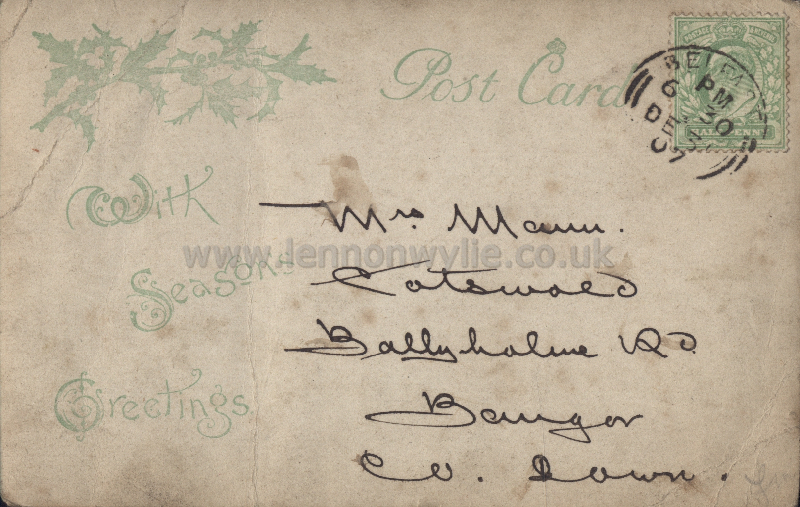 Post Card
With
Season's
Greetings
BELFAST
6 PM
DE 30
07
HALFPENNY
Mrs Mann.
www.lennonwylie.co.uk
Cotswold
Ballyholme Rd
Bangor
Co. Down.